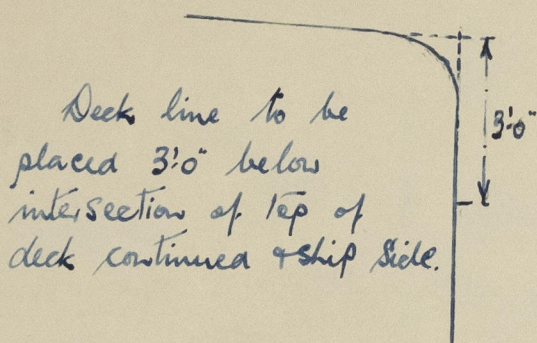 Deck line to be
placed 3'.0" below
intersection of top of
deck continued & ship side.
3'.0"